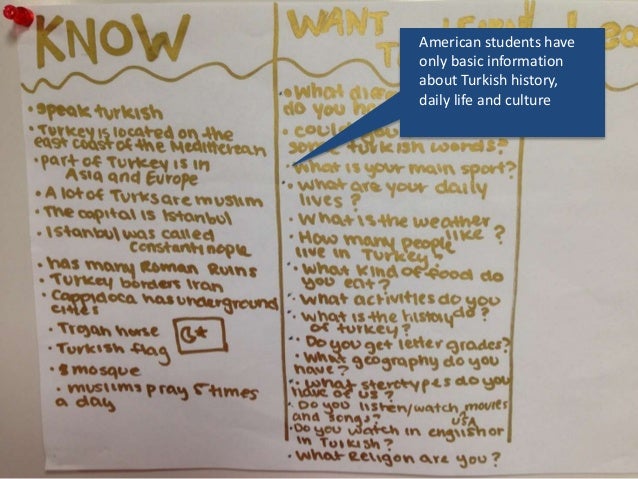 KNOW
• speak turkish
• Turkey is located on the
east coast of the Mediterrean
• part of Turkey is in
Asia and Europe
• A lot of Turks are muslim
• The capital is Istanbul
• Istanbul was called
Constantinople
• has many Roman Ruins
• Turkey borders Iran
• Cappidoca has underground
cities
• Trojan horse
• Turkish flag
• mosque
• muslims pray 5 times
a day
WANT
T
• What
do you
• could you
some turkish words?
• What is your main sport?
• what are your daily
lives?
• What is the weather
like?
• How many people
live in Turkey?
• what kind of food do
you eat?
• what activities do you
do?
• what is the history
of turkey?
• Do you get letter grades?
• What geography do you
have?
• What sterotypes do you
have of us?
• Do you listen/watch movies
and songs? USA
• Do you watch in english or
in Turkish?
• What Religion are you?
American students have
only basic information
about Turkish history,
daily life and culture